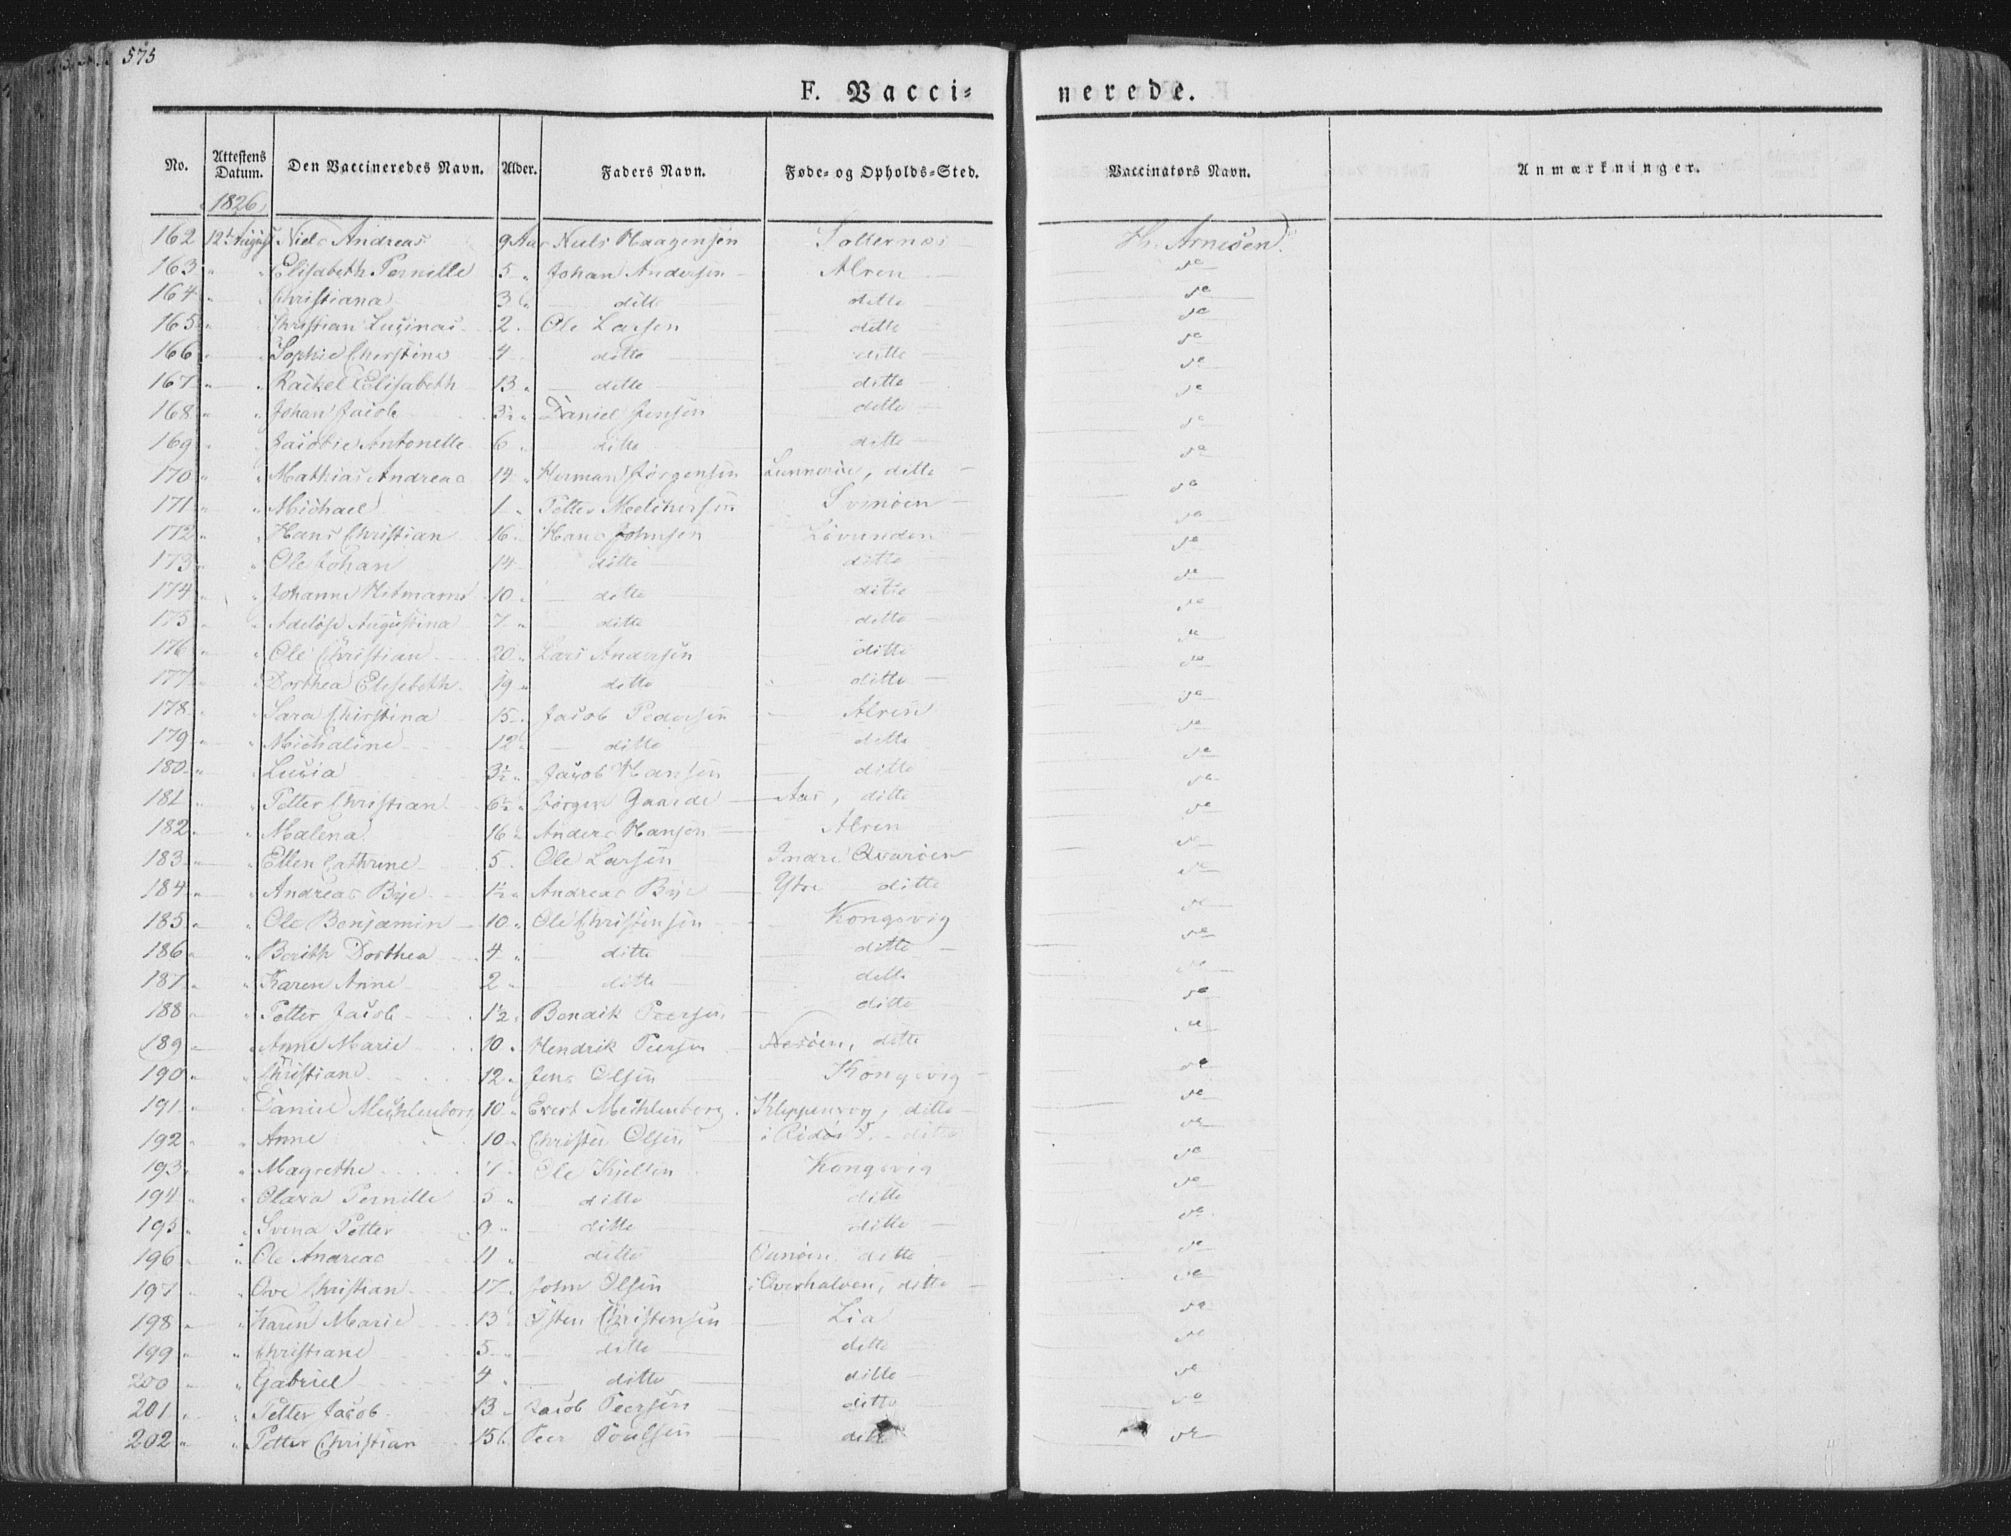 575
F. Vacci- nerede.
No. Attestens Datum. Den Vaccineredes Navn. Alder. Faders Navn. Føde- og Opholds-Sted. Vaccinators Navn. Anmærkninger.
1826
162 12te August Niels Andreas 9 Aar Niels Haagensen H. Arnesen
163 " " Elisabeth Pernille 5 " Johan Andersen Alren de
164 " " Christiana ditto ditto de
165 " " Christian 2 " Ole Larsen ditto de
166 " " Sophie Cherstine 4 ditto ditto de
167 " " Rachel Elisabeth 13 " ditto ditto de
168 " " Johan Jacob 3½ " Daniel Jensen ditto de
169 " " Jacobie Antonette 6 " ditto ditto de
170 " " Mathias Andreas 14 " Herman Jørgensen ditto de
171 " " Michael 1 " Petter Melchersen Svinøen de
172 " " Hans Christian 16 " Hans Johnsen Lovunden de
173 " " Ole Johan 14 " ditto ditto de
174 " " Johanne 10 " ditto ditto de
175 " " Augustina 7 " ditto ditto de
176 " " Ole Christian 20 " Lars Andersen ditto de
177 " " Dorthea Elisebeth 19 " ditto ditto de
178 " " Sara Chirstina 15 " Jacob Pedersen Alren de
179 " " Michaline 12 " ditto ditto de
180 " " Lucia 3½ " Jacob Hansen ditto de
181 " " Petter Christian 6½ " Jørgen Gaarde Aas, ditto de
182 " " Malena 16 " Anders Hansen Alren de
183 " " Ellen Cathrine 5 " Ole Larsen Indre Qvarøen de
184 " " Andreas Bye 1½ " Andreas Bye Ytre ditto de
185 " " Ole Benjamin 10 " Ole Christensen Kongsvig de
186 " " Berith Dorthea 4 " ditto ditto de
187 " " Karen Anne 2 " ditto ditto de
188 " " Petter Jacob 1½ " Bendik Peersen ditto de
189 " " Anne Marie 10 " Hendrik Peersen Nesøen, ditto de
190 " " Christiane 12 " Jens Olsen Kongsvig de
191 " " Daniel Mechlenborg 10 " Evert Mechlenborg ditto de
192 " " Anne 10 " Christen Olsen ditto de
193 " " Magrethe 7 " Ole Kjelsen Kongsvig de
194 " " Olava Pernille 5 " ditto ditto de
195 " " Svend Petter 9 " ditto ditto de
196 " " Ole Andreas 11 " ditto ditto de
197 " " Ove Christian 17 " John Olsen i Overhalven, ditto de
198 " " Karen Marie 13 " Østen Christensen Lia de
199 " " Christiane 5 " ditto ditto de
200 " " Gabriel 4 " ditto ditto de
201 " " Petter Jacob 13 " Jacob Peersen ditto de
202 " " Petter Christian Peer Poulsen ditto de